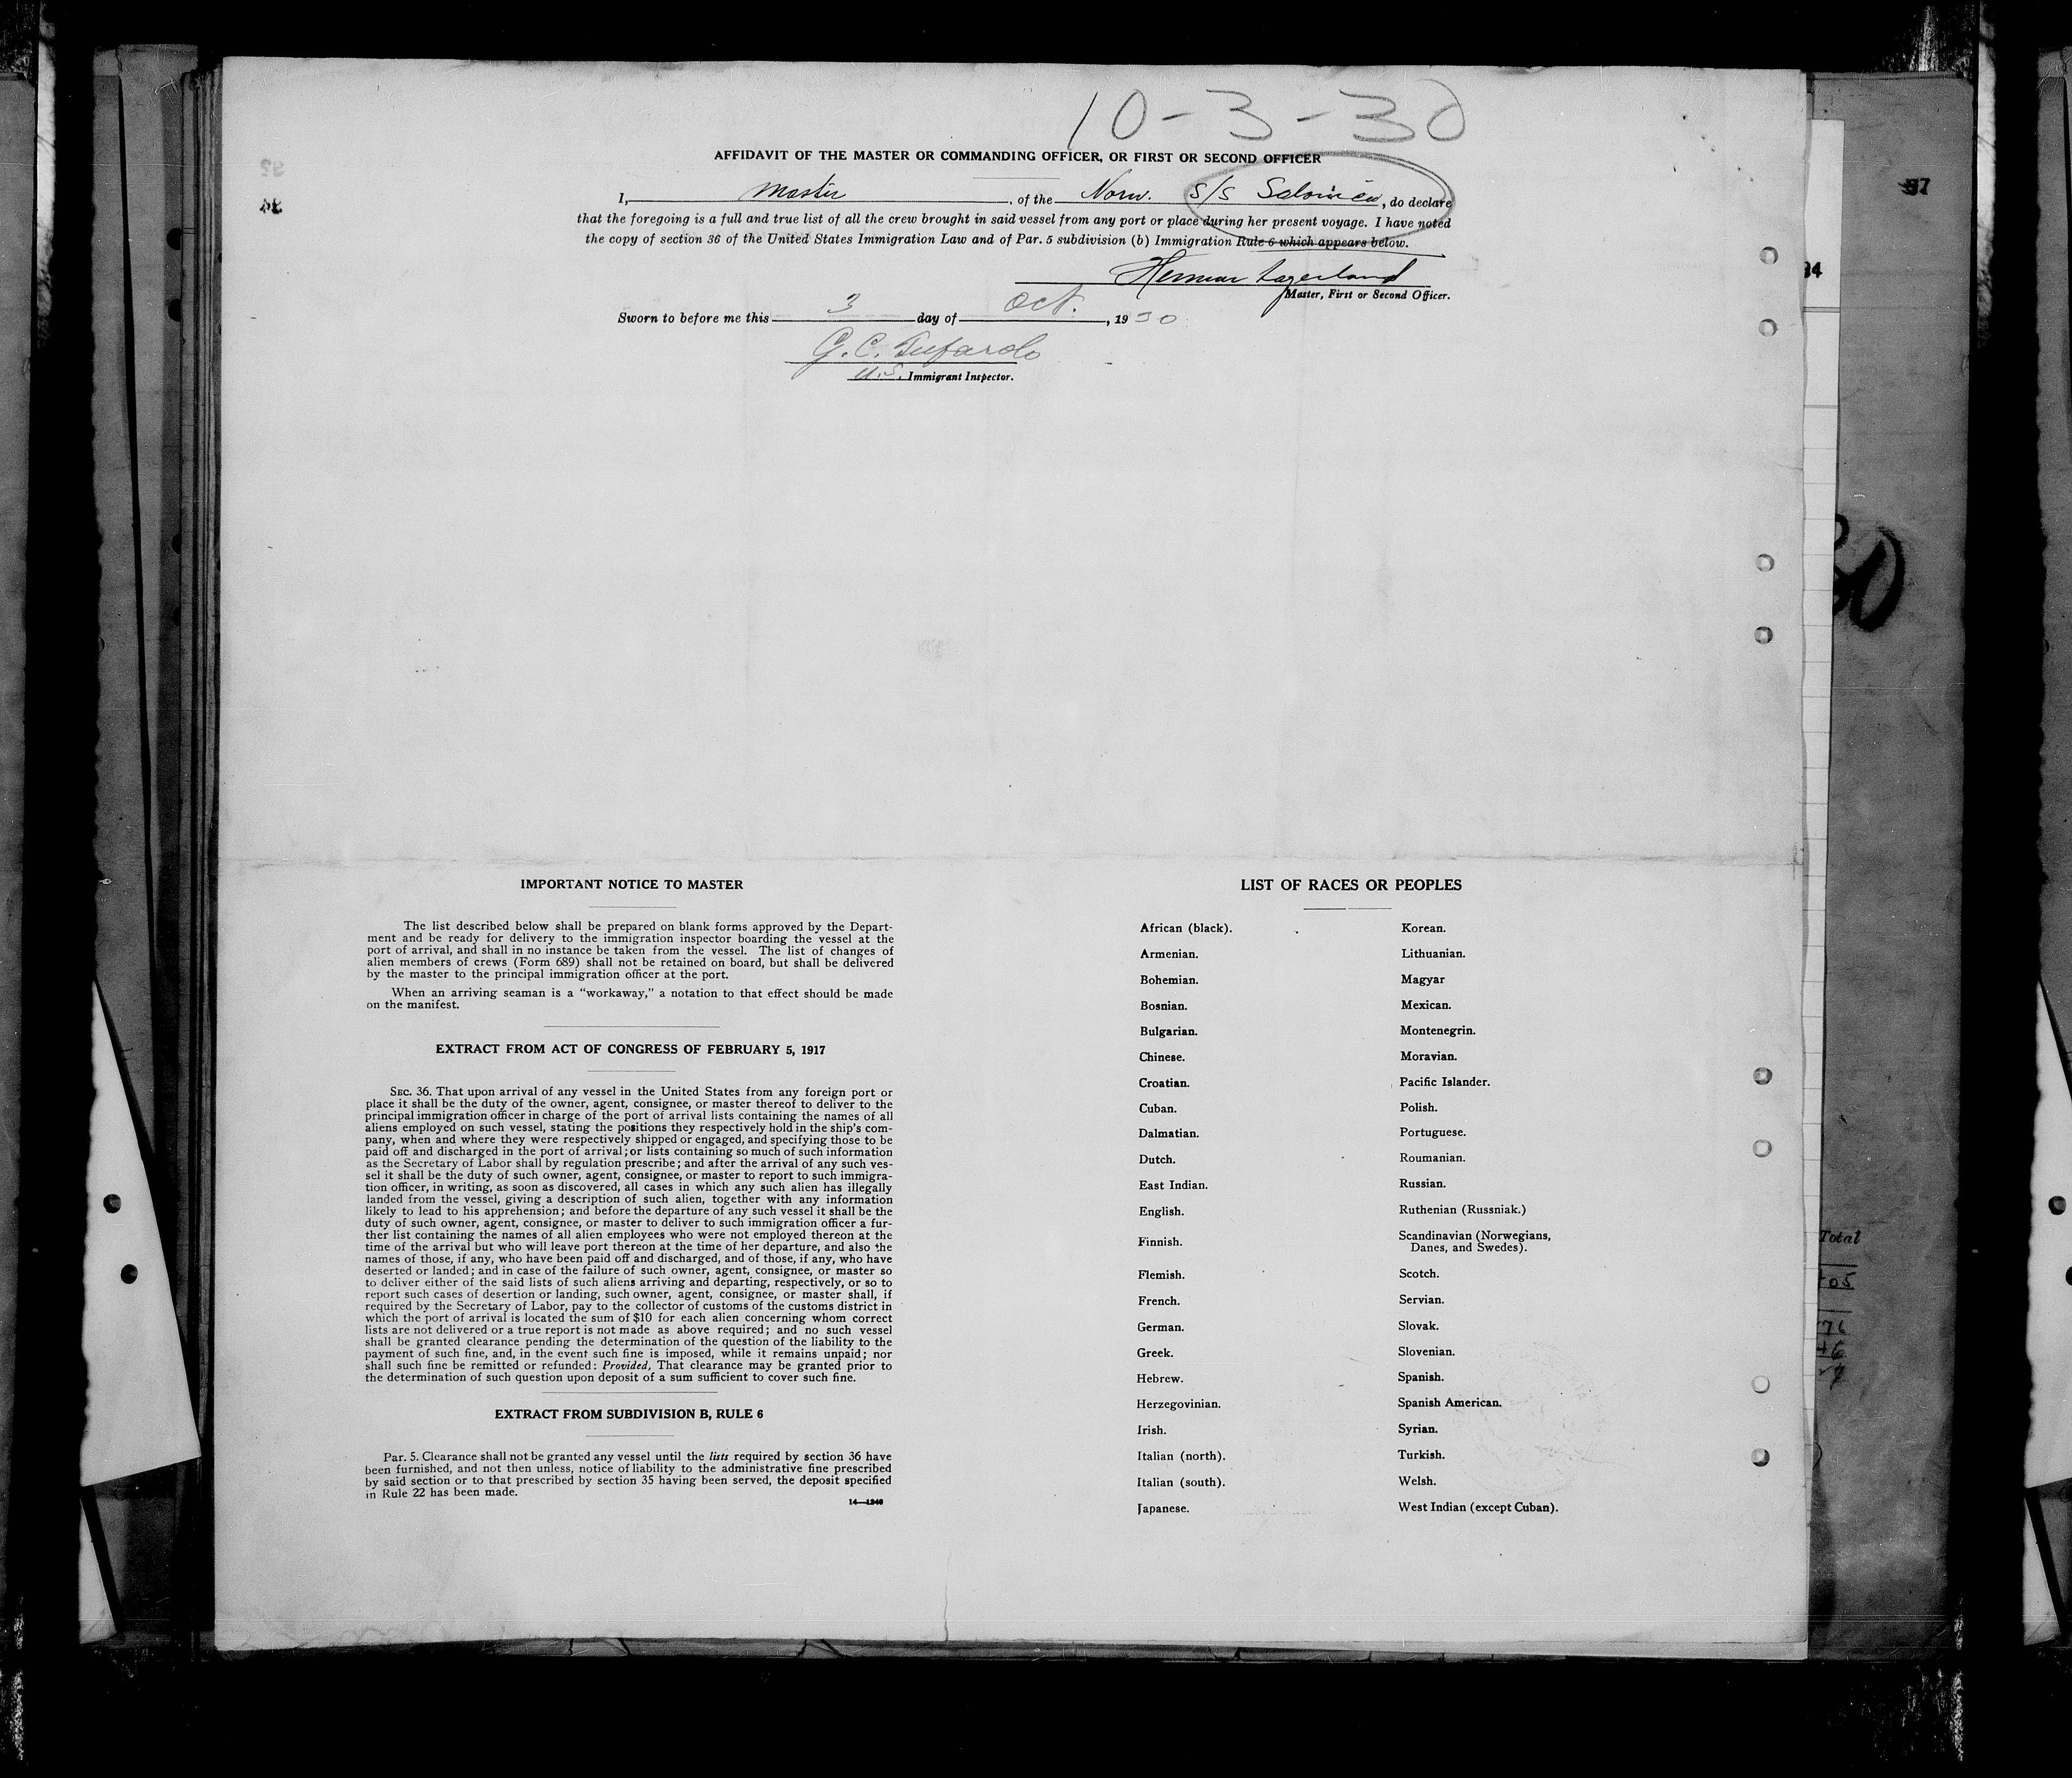 10-3-30
AFFIDAVIT OF THE MASTER OR COMMANDING OFFICER, OR FIRST OR SECOND OFFICER
I, Master, of the Norw. S/S, do declare
that the foregoing is a full and true list of all the crew brought in said vessel from any port or place during her present voyage. I have noted
the copy of section 36 of the United States Immigration Law and of Par. 5 subdivision (b) Immigration Rule 6 which appears below.
Master, First or Second Officer.
Sworn to before me this 3 day of Oct., 1930
G. C.
U.S. Immigrant Inspector.
97
34
IMPORTANT NOTICE TO MASTER
The list described below shall be prepared on blank forms approved by the Depart-
ment and be ready for delivery to the immigration inspector boarding the vessel at the
port of arrival, and shall in no instance be taken from the vessel. The list of changes of
alien members of crews (Form 689) shall not be retained on board, but shall be delivered
by the master to the principal immigration officer at the port.
When an arriving seaman is a “workaway,” a notation to that effect should be made
on the manifest.
EXTRACT FROM ACT OF CONGRESS OF FEBRUARY 5, 1917
SEC. 36. That upon arrival of any vessel in the United States from any foreign port or
place it shall be the duty of the owner, agent, consignee, or master thereof to deliver to the
principal immigration officer in charge of the port of arrival lists containing the names of all
aliens employed on such vessel, stating the positions they respectively hold in the ship's com-
pany, when and where they were respectively shipped or engaged, and specifying those to be
paid off and discharged in the port of arrival; or lists containing so much of such information
as the Secretary of Labor shall by regulation prescribe; and after the arrival of any such ves-
sel it shall be the duty of such owner, agent, consignee, or master to report to such immigra-
tion officer, in writing, as soon as discovered, all cases in which any such alien has illegally
landed from the vessel, giving a description of such alien, together with any information
likely to lead to his apprehension; and before the departure of any such vessel it shall be the
duty of such owner, agent, consignee, or master to deliver to such immigration officer a fur-
ther list containing the names of all alien employees who were not employed thereon at the
time of the arrival but who will leave port thereon at the time of her departure, and also the
names of those, if any, who have been paid off and discharged, and of those, if any, who have
deserted or landed; and in case of the failure of such owner, agent, consignee, or master so
to deliver either of the said lists of such aliens arriving and departing, respectively, or so to
report such cases of desertion or landing, such owner, agent, consignee, or master shall, if
required by the Secretary of Labor, pay to the collector of customs of the customs district in
which the port of arrival is located the sum of $10 for each alien concerning whom correct
lists are not delivered or a true report is not made as above required; and no such vessel
shall be granted clearance pending the determination of the question of the liability to the
payment of such fine, and, in the event such fine is imposed, while it remains unpaid; nor
shall such fine be remitted or refunded: Provided, That clearance may be granted prior to
the determination of such question upon deposit of a sum sufficient to cover such fine.
EXTRACT FROM SUBDIVISION B, RULE 6
Par. 5. Clearance shall not be granted any vessel until the lists required by section 36 have
been furnished, and not then unless, notice of liability to the administrative fine prescribed
by said section or to that prescribed by section 35 having been served, the deposit specified
in Rule 22 has been made.
14—1240
LIST OF RACES OR PEOPLES
African (black).
Armenian.
Bohemian.
Bosnian.
Bulgarian.
Chinese.
Croatian.
Cuban.
Dalmatian.
Dutch.
East Indian.
English.
Finnish.
Flemish.
French.
German.
Greek.
Hebrew.
Herzegovinian.
Irish.
Italian (north).
Italian (south).
Japanese.
Korean.
Lithuanian.
Magyar
Mexican.
Montenegrin.
Moravian.
Pacific Islander.
Polish.
Portuguese.
Roumanian.
Russian.
Ruthenian (Russniak.)
Scandinavian (Norwegians,
Danes, and Swedes).
Scotch.
Servian.
Slovak.
Slovenian.
Spanish.
Spanish American.
Syrian.
Turkish.
Welsh.
West Indian (except Cuban).
Total